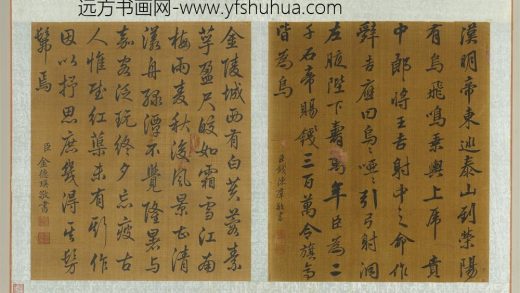 远方书画网-www.yfshuhua.com
漢明帝東巡泰山到滎陽
有烏飛鳴乘輿上虎賁
中郎將王吉射中之命作
辭吉應曰烏〻啞〻引弓射洞
左腋陛下壽萬年臣為二
千石帝賜錢三百萬令旗亭
皆為烏
臣錢陳群敬書
金陵城西有白芙蓉素
萼盈尺皎如霜雪江南
梅雨麦秋後風景甚清
漾舟綠潭不覺隆暑与
嘉客泛玩終夕忘疲古
人惟賦紅蕖未有斯作
因以抒思庶幾得其髣
髴焉
臣金德瑛敬書